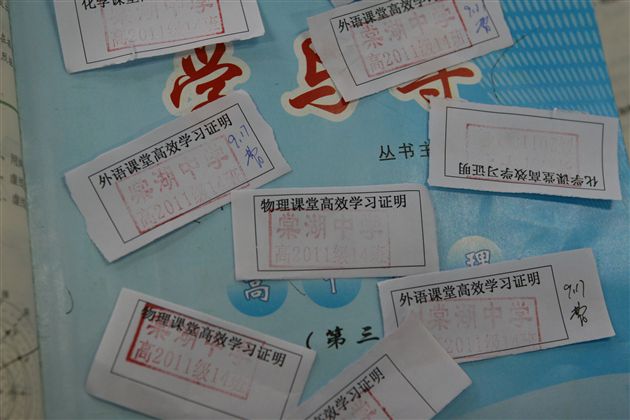 化学课堂
高2011级14班
外语课堂高效学习证明
棠湖中学
高2011级14班
9.17
学与导
外语课堂高效学习证明
9.17
棠湖中学
高2011级14班
丛书主
化学课堂高效学习证明
物理课堂高效学习证明
棠湖中学
高2011级14班
高中
理
外语课堂高效学习证明
9.17
棠湖中学
高2011级14班
物理课堂高效学习证明
棠湖中学
高2011级14班
(第三
课堂高效学习证明